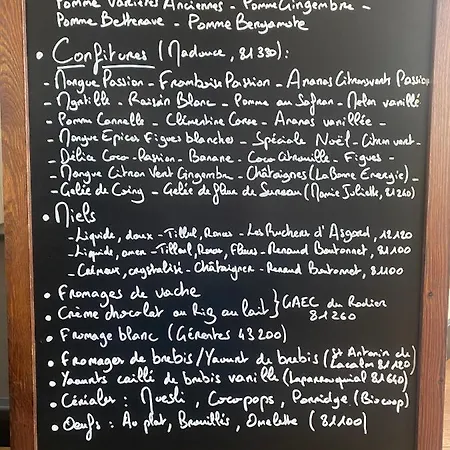 Pomme Variétés Anciennes - Pomme Gingembre -
Pomme Betterave - Pomme Bergamote
• Confitures (Madouce, 81330):
- Mangue Passion - Framboise Passion - Ananas Citronvert Passion
- Myrtille - Raisin Blanc - Pomme au Safran - Melon vanillé
- Pomme Cannelle - Clémentine Corse - Ananas vanillée -
- Mangue Epices Figues blanches - Spéciale Noël - Citron vert -
- Délice Coco-Passion - Banane - Coco Citrouille - Figues -
- Mangue Citron Vert Gingembre - Châtaignes (La Bonne Energie) -
- Gelée de Coing - Gelée de fleur de Sureau (Mamie Juliette, 81260)
• Miels
- Liquide, doux - Tilleul, Ronces - Les Ruchers d'Asgard, 12120
- Liquide, amer - Tilleul, Ronce, Fleurs - Renaud Boutonnet, 81100
- Crémeux, crystallisé - Châtaignier - Renaud Boutonnet, 81100
• Fromages de vache
• Crème chocolat ou Riz au lait } GAEC du Rodier 81260
• Fromage blanc (Gérentes 43200)
• Fromages de brebis / Yaourt de brebis (St Antonin de Lacalm 81120)
• Yaourts caillé de brebis vanille (81640)
• Céréales : Muesli, Cocopops, Porridge (Biocoop)
• Oeufs : Au plat, Brouillés, Omelette (81100)